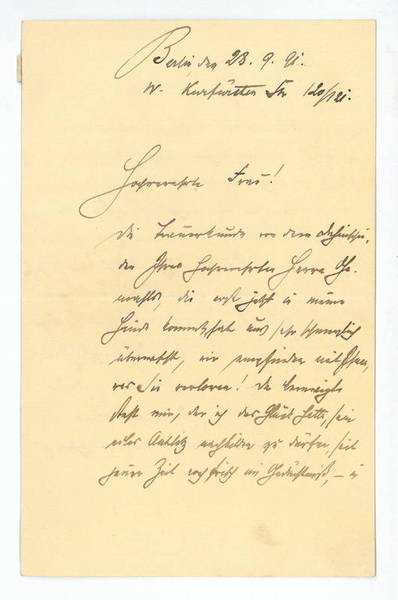 Berlin, den 28. 9. 91.
W. Kurfürsten Str 120/121.
Hochverehrte Frau!
Die Trauerkunde von dem Dahinschei-
den Ihres hochverehrten Herrn Ge-
mahls, die erst jetzt in meine
Hände kommt, hat uns sehr schmerzlich
überrascht, wir empfinden mit Ihnen,
was Sie verloren! Der
steht mir, der ich das Glück hatte, sein
edles Antlitz nachbilden zu dürfen, seit
jener Zeit noch frisch im Gedächtniß, — in